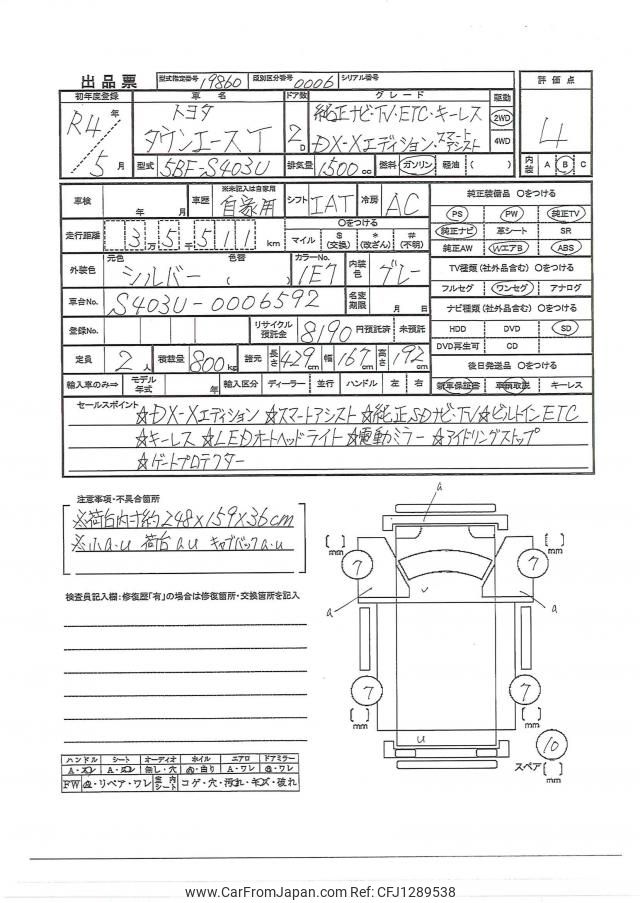 出品票 型式指定番号 19860 類別区分番号 0006 シリアル番号
初年度登録 車名 ドア数 グレード 駆動 評価点
R4年 トヨタ 純正ナビ・TV・ETC・キーレス 2WD
タウンエースT 2D DX-Xエディション・スマートアシスト 4WD 4
5月 型式 5BF-S403U 排気量 1500cc 燃料 ガソリン 軽油 ( ) 内装 A B C
車検 年 月 車歴 ※未記入は自家用 自家用 シフト IAT 冷房 AC
純正装備品 〇をつける
PS PW 純正TV
純正ナビ 革シート SR
純正AW WエアB ABS
走行距離 3万5千511km
〇をつける
マイル $(交換) *(改ざん) #(不明)
外装色 元色 シルバー 色替 ( ) カラーNo. 1E7 内装色 グレー
TV種類(社外品含む) 〇をつける
フルセグ ワンセグ アナログ
車台No. S403U-0006592 名変期限 月 日
ナビ種類(社外品含む) 〇をつける
登録No. リサイクル預託金 8190円預託済 未預託
HDD DVD SD
DVD再生可 CD
定員 2人 積載量 800kg 諸元 長さ429cm 幅167cm 高さ192cm
後日発送品 〇をつける
輸入車のみ⇒ モデル年式 年 輸入区分 ディーラー 並行 ハンドル 左 右
新車保証書 車輌取説 キーレス
セールスポイント
☆DX-Xエディション ☆スマートアシスト ☆純正SDナビ・TV☆ビルトインETC
☆キーレス ☆LEDオートヘッドライト ☆電動ミラー ☆アイドリングストップ
☆ゲートプロテクター
注意事項・不具合箇所
※荷台内寸約248×159×36cm
※小a・u 荷台au キャブバックa・u
検査員記入欄:修復歴「有」の場合は修復箇所・交換箇所を記入
a
[ ]mm [ ]mm
7 7
a a
7 7
[ ]mm [ ]mm
u
10
スペア[ ]mm
ハンドル シート オーディオ ホイル エアロ ドアミラー
A・スレ A・スレ 無し・穴 a・曲り A・ワレ a・ワレ
FW a・リペア・ワレ 室内シート コゲ・穴・汚れ・キズ・破れ
www.CarFromJapan.com Ref: CFJ1289538